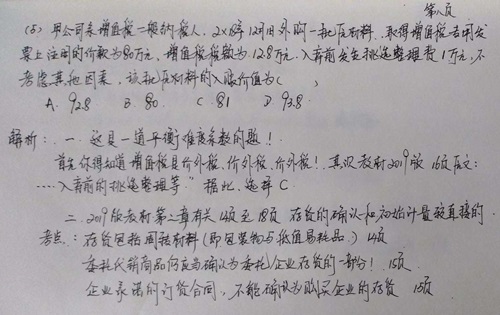 第八页
(5) 甲公司系增值税一般纳税人，2×18年12月1日外购一批原材料，取得增值税专用发
票上注明的价款为80万元，增值税税额为12.8万元，入库前发生挑选整理费1万元，不
考虑其他因素，该批原材料的入账价值为（ ）
A. 92.8 B 80 C 81 D 93.8
解析：一、这是一道平衡难度系数的题！
首先你得知道增值税是价外税、价外税、价外税！其次教材2019版 16页原文：
……入库前的挑选整理等" 据此，选择C
二、2019版教材第二章有关14页至18页 存货的确认和初始计量较直接的
考点：存货包括周转材料（即包装物与低值易耗品） 14页
委托代销商品仍应当确认为委托企业存货的一部分！ 15页
企业承诺的订货合同，不能确认为购买企业的存货 15页